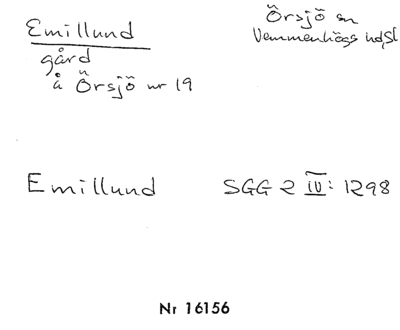 Emillund
gård
å Örsjö nr 19
Örsjö sn
Vemmenhögs hd, Sk
Emillund SGG 2 IV: 1298
Nr 16156